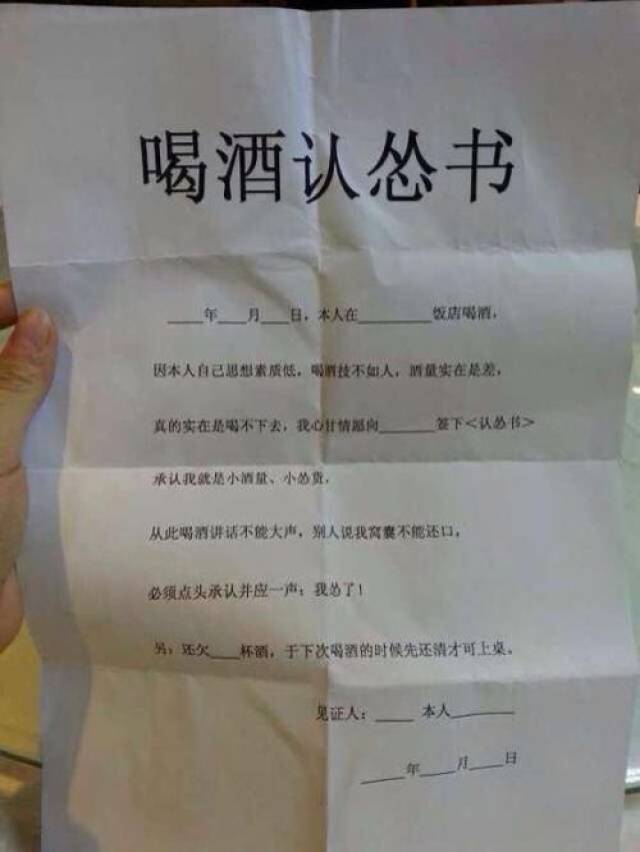 喝酒认怂书
____年___月___日，本人在__________饭店喝酒，
因本人自己思想素质低，喝酒技不如人，酒量实在是差，
真的实在是喝不下去，我心甘情愿向_______签下<认怂书>
承认我就是小酒量、小怂货，
从此喝酒讲话不能大声，别人说我窝囊不能还口，
必须点头承认并应一声：我怂了！
另：还欠___杯酒，于下次喝酒的时候先还清才可上桌。
见证人：____ 本人_______
_____年____月____日